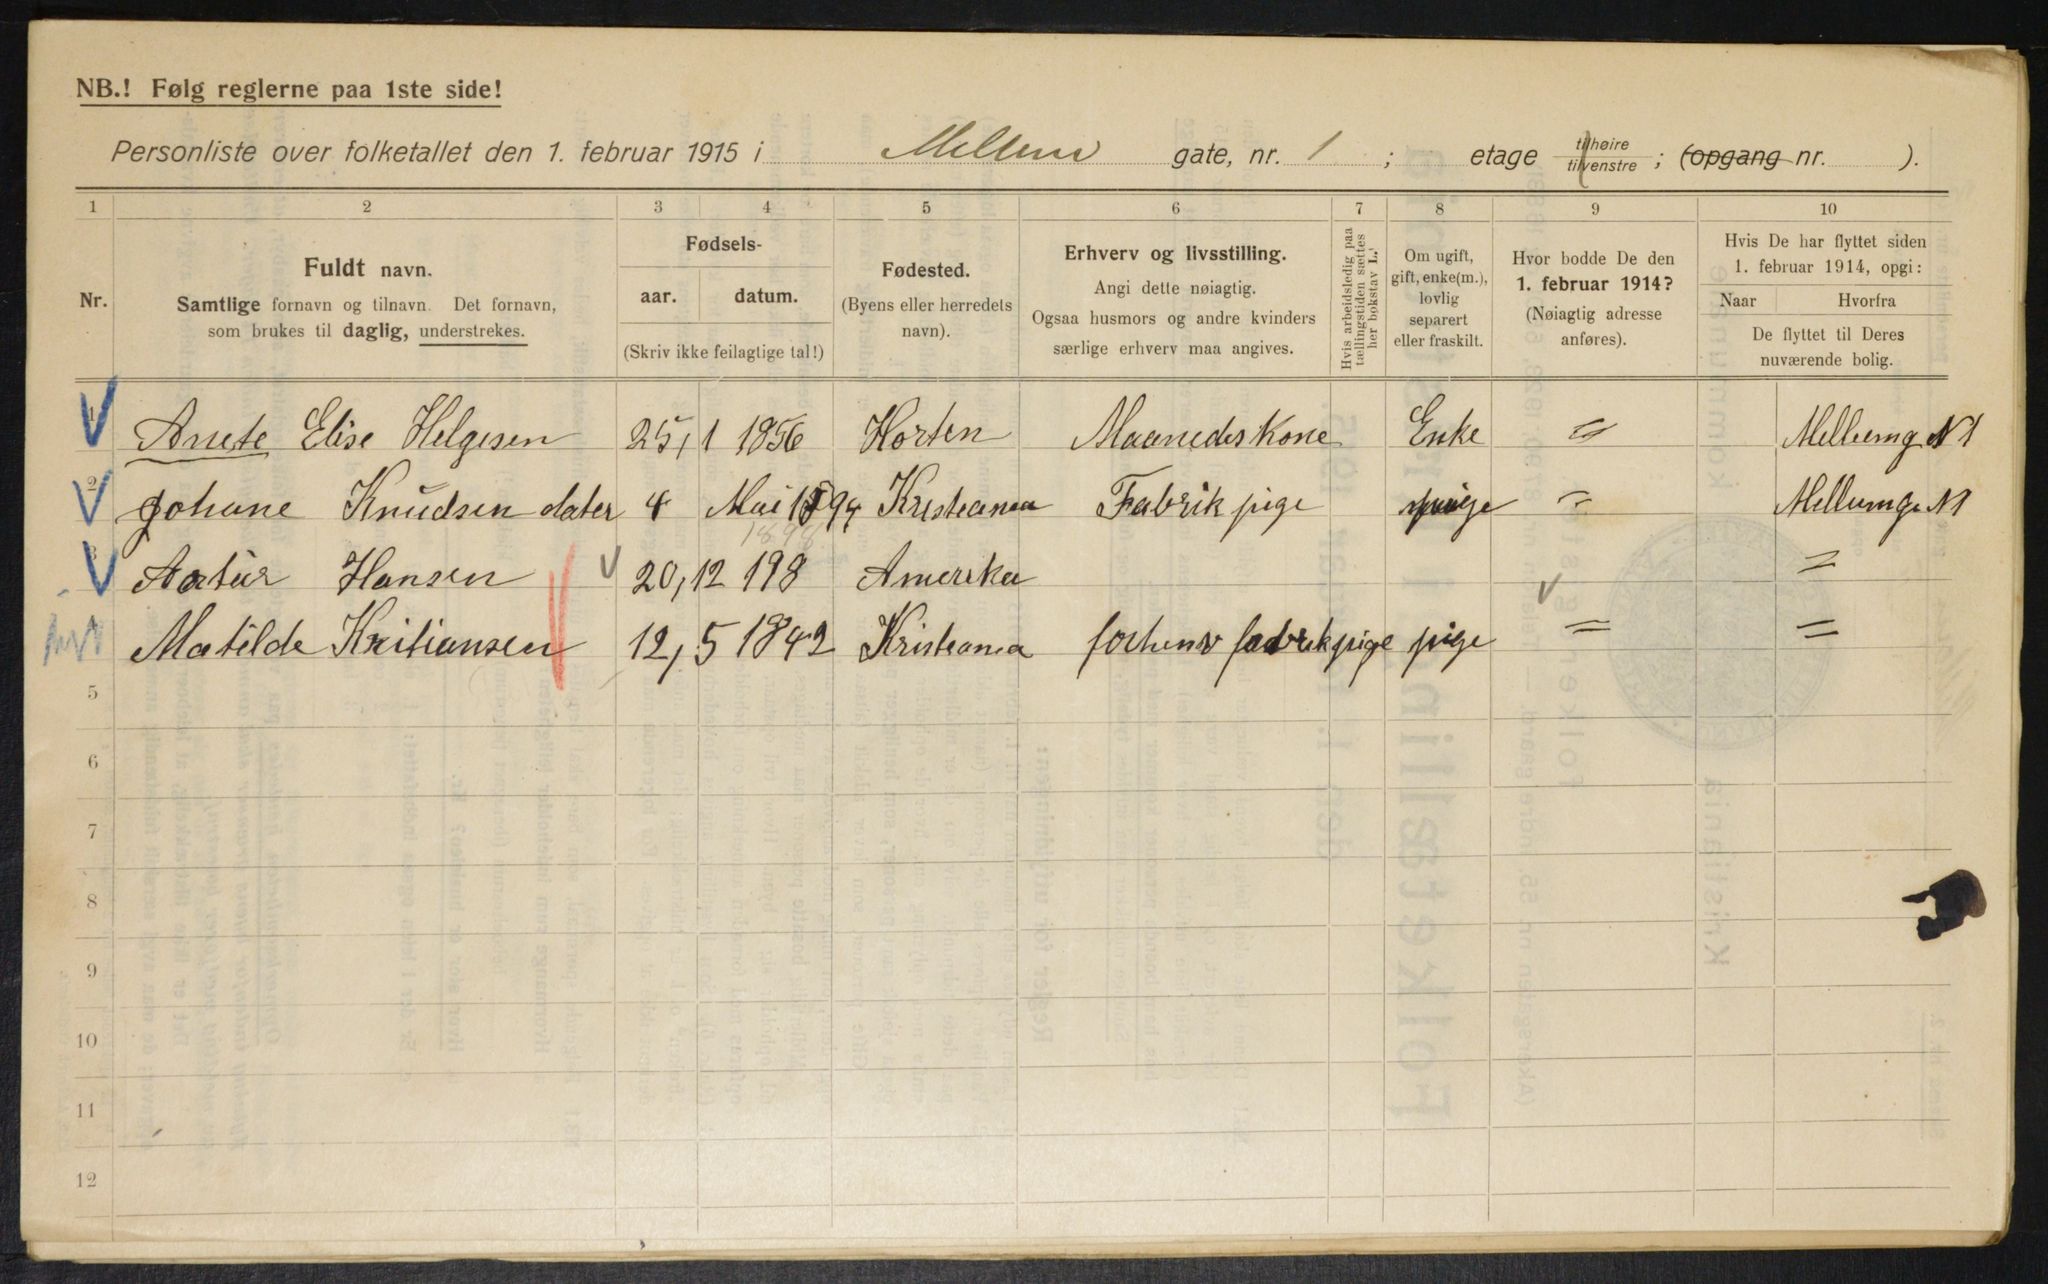 NB.! Følg reglerne paa 1ste side!
Personliste over folketallet den 1. februar 1915 i Mellum gate, nr. 1 ; etage tilhøire tilvenstre ; (opgang nr. ).
1 2 3 4 5 6 7 8 9 10
Nr.
Fuldt navn.
Samtlige fornavn og tilnavn. Det fornavn,
som brukes til daglig, understrekes.
Fødsels-
aar. datum.
(Skriv ikke feilagtige tal!)
Fødested.
(Byens eller herredets
navn).
Erhverv og livsstilling.
Angi dette nøiagtig.
Ogsaa husmors og andre kvinders
særlige erhverv maa angives.
Hvis arbeidsledig paa
tællingstiden sættes
her bokstav L.
Om ugift,
gift, enke(m.),
lovlig
separert
eller fraskilt.
Hvor bodde De den
1. februar 1914?
(Nøiagtig adresse
anføres).
Hvis De har flyttet siden
1. februar 1914, opgi:
Naar Hvorfra
De flyttet til Deres
nuværende bolig.
1 Anete Elise Helgesen 25, 1 1856 Horten Maanedskone Enke " Mellumg N 1
2 Johane Knudsen dater 4 Mai 1894 Kristeania Fabrik pige pige " Mellumg N 1
1898
3 Artur Hansen 20, 12 198 Amerika "
4 Matilde Kritiansen 12, 5 1842 Kristeania forhenv fabrikpige pige " "
5
6
7
8
9
10
11
12